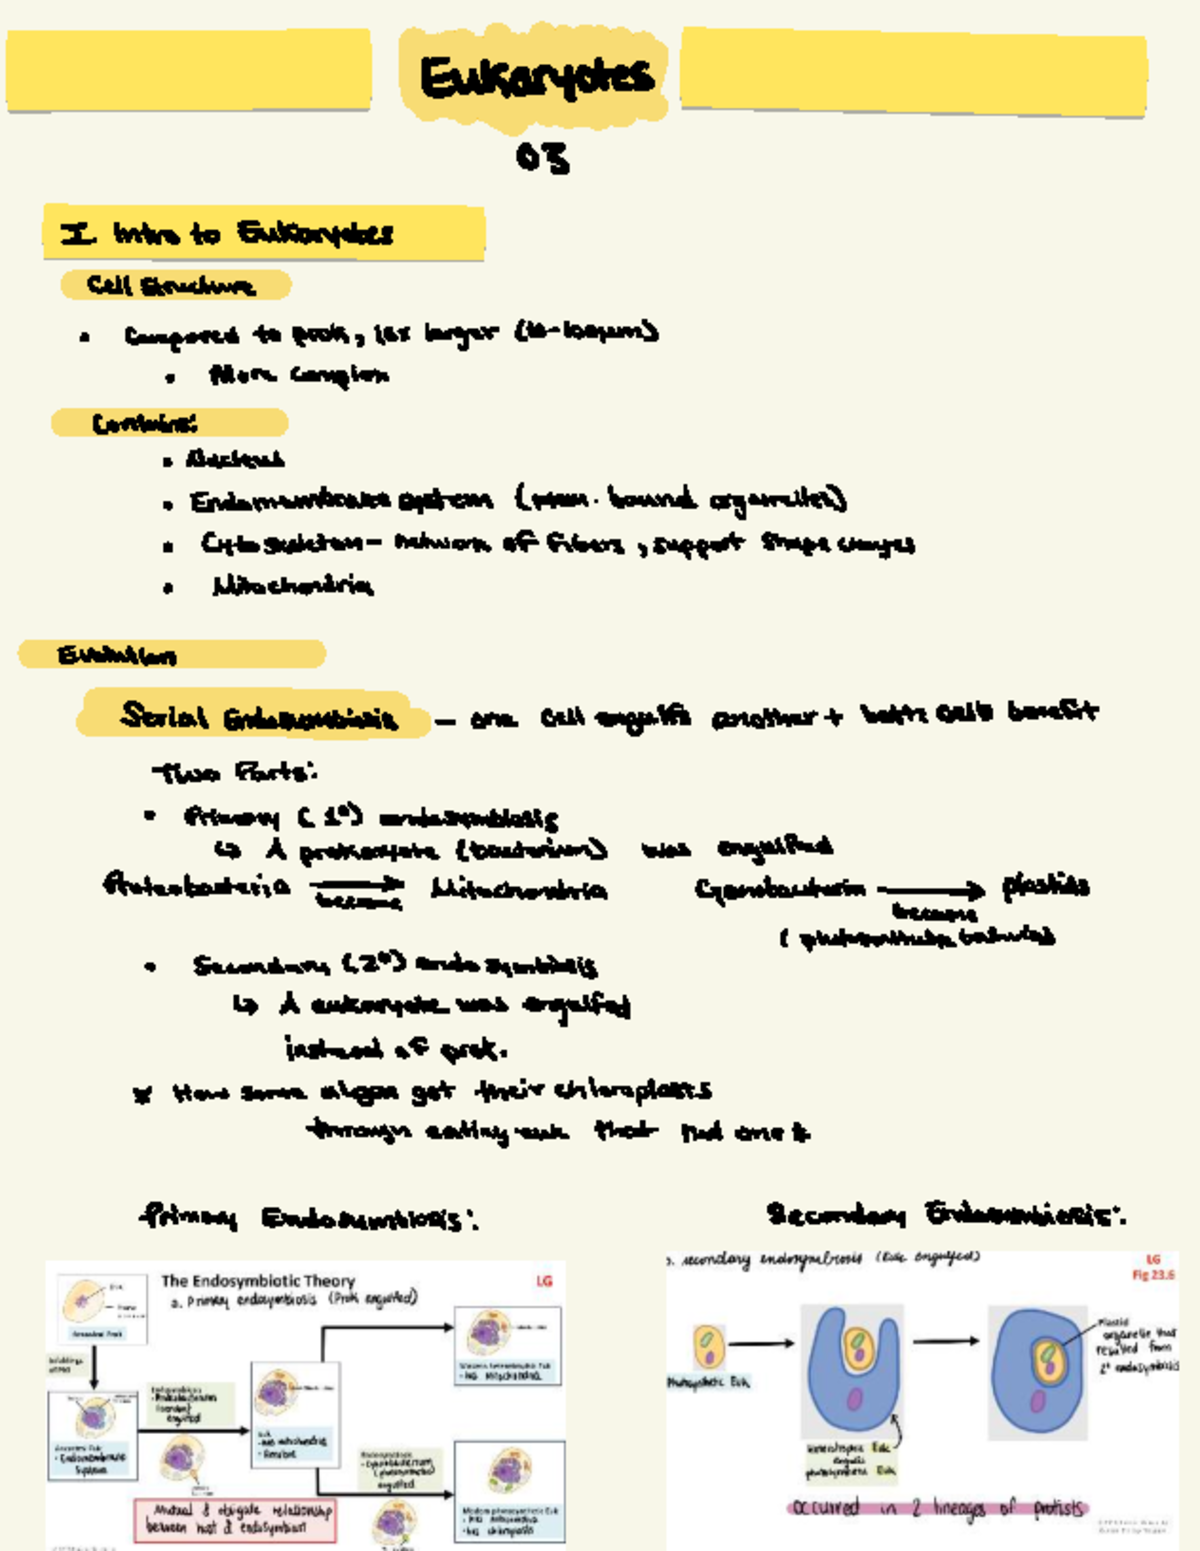 Eukaryotes
03
I. Intro to Eukaryotes
Cell Structure
• Compared to prok, 10x larger (10-100µm)
• More complex
Contains:
• Nucleus
• Endomembrane system (mem. bound organelles)
• Cytoskeleton - network of fibers, support shape changes
• Mitochondria
Evolution
Serial Endosymbiosis - one cell engulfs another + both cells benefit
Two Parts:
• Primary (1°) endosymbiosis
↳ A prokaryote (bacterium) was engulfed
Proteobacteria → Mitochondria
become
Cyanobacterium → plastids
become
• Secondary (2°) endosymbiosis
↳ A eukaryote was engulfed
instead of prok.
* How some algae get their chloroplasts
through eating euk that had one *
Primary Endosymbiosis:
Secondary Endosymbiosis:
The Endosymbiotic Theory
LG
a. Primary endosymbiosis (Prok engulfed)
Ancestral Prok
Ancestral Euk
• Endomembrane
System
Endosymbiosis
• Proteobacterium
engulfed
Euk
• Has mitochondria
• Has mitochondria
Endosymbiosis
• Cyanobacterium
engulfed
Modern photosynthetic Euk
• Has mitochondria
• Has chloroplasts
Mutual & obligate relationship
between host & endosymbiont
secondary endosymbiosis (Euk engulfed)
LG
Fig 23.6
Photosynthetic Euk
Heterotrophic Euk
engulfs
photosynthetic Euk
Plastid
organelle that
resulted from
2° endosymbiosis
occurred in 2 lineages of protists